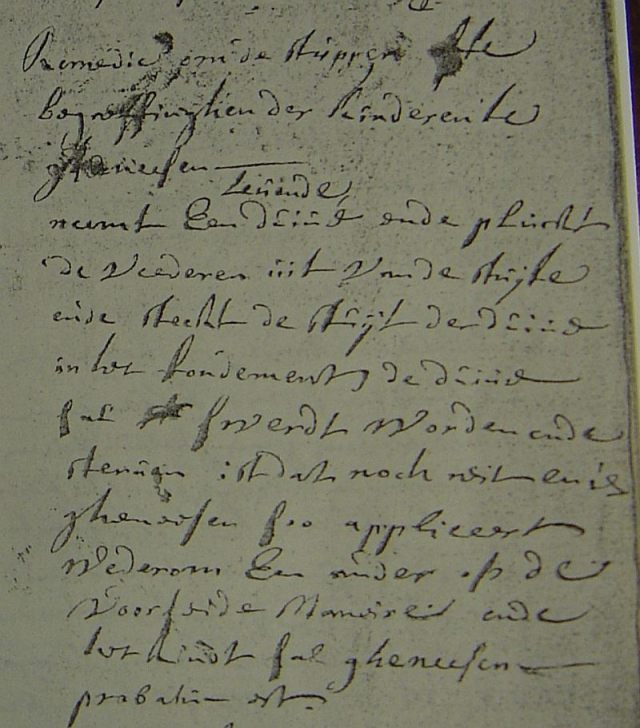 Remedie om de stuppen ofte
begaeffinghen der kinderen te
gheneesen
leuende
neemt een duiue ende pluckt
de veederen uit van de stuijte
ende steckt de stuijt der duiue
in het fondement, de duiue
sal swerdt worden ende
steruen ist dat noch niet en is
gheneesen soo appliceert
wederom een ander op de
voorseide maniere ende
het kindt sal gheneesen
probatum est.